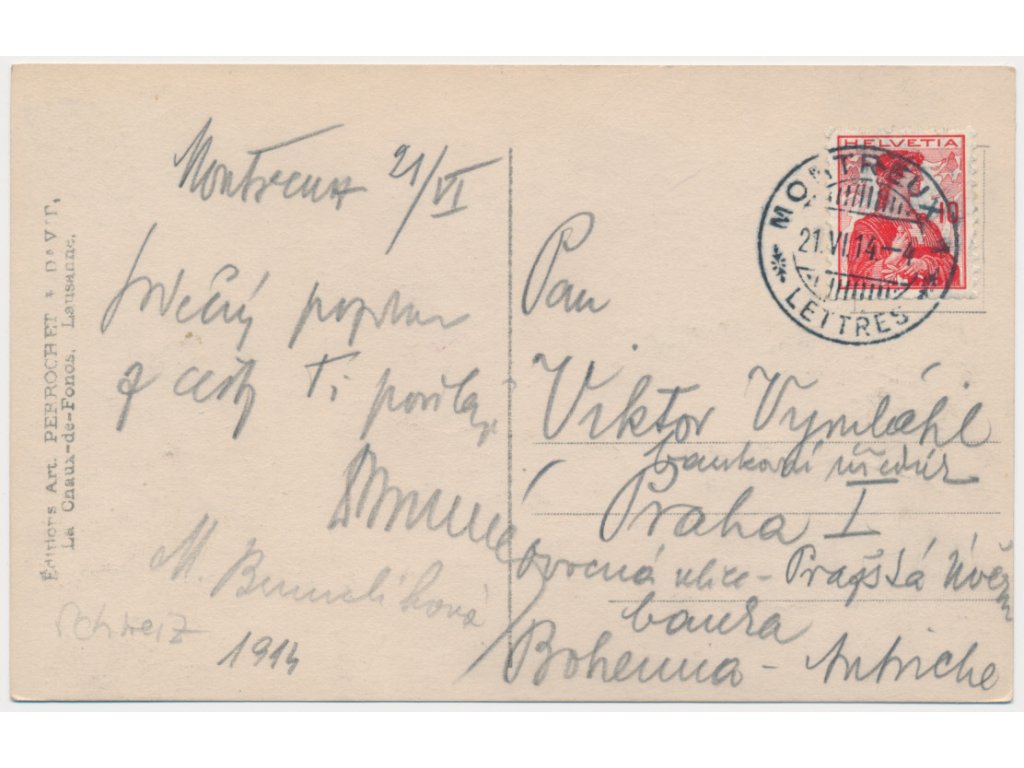 Editions Art. PERROCHET & DAVID,
La Chaux-de-Fonds, Lausanne.
Montreux 21/VI
Srdečný pozdrav
z cesty Ti posílají
M. Bumelíková
Schweiz
1914
HELVETIA
10
MONTREUX
21.VI.14.-4
LETTRES
Pan
Viktor Vymláhl
bankovní úředník
Praha I
Ovocná ulice - Pražská Úvěrní
banka
Bohemia - Autriche